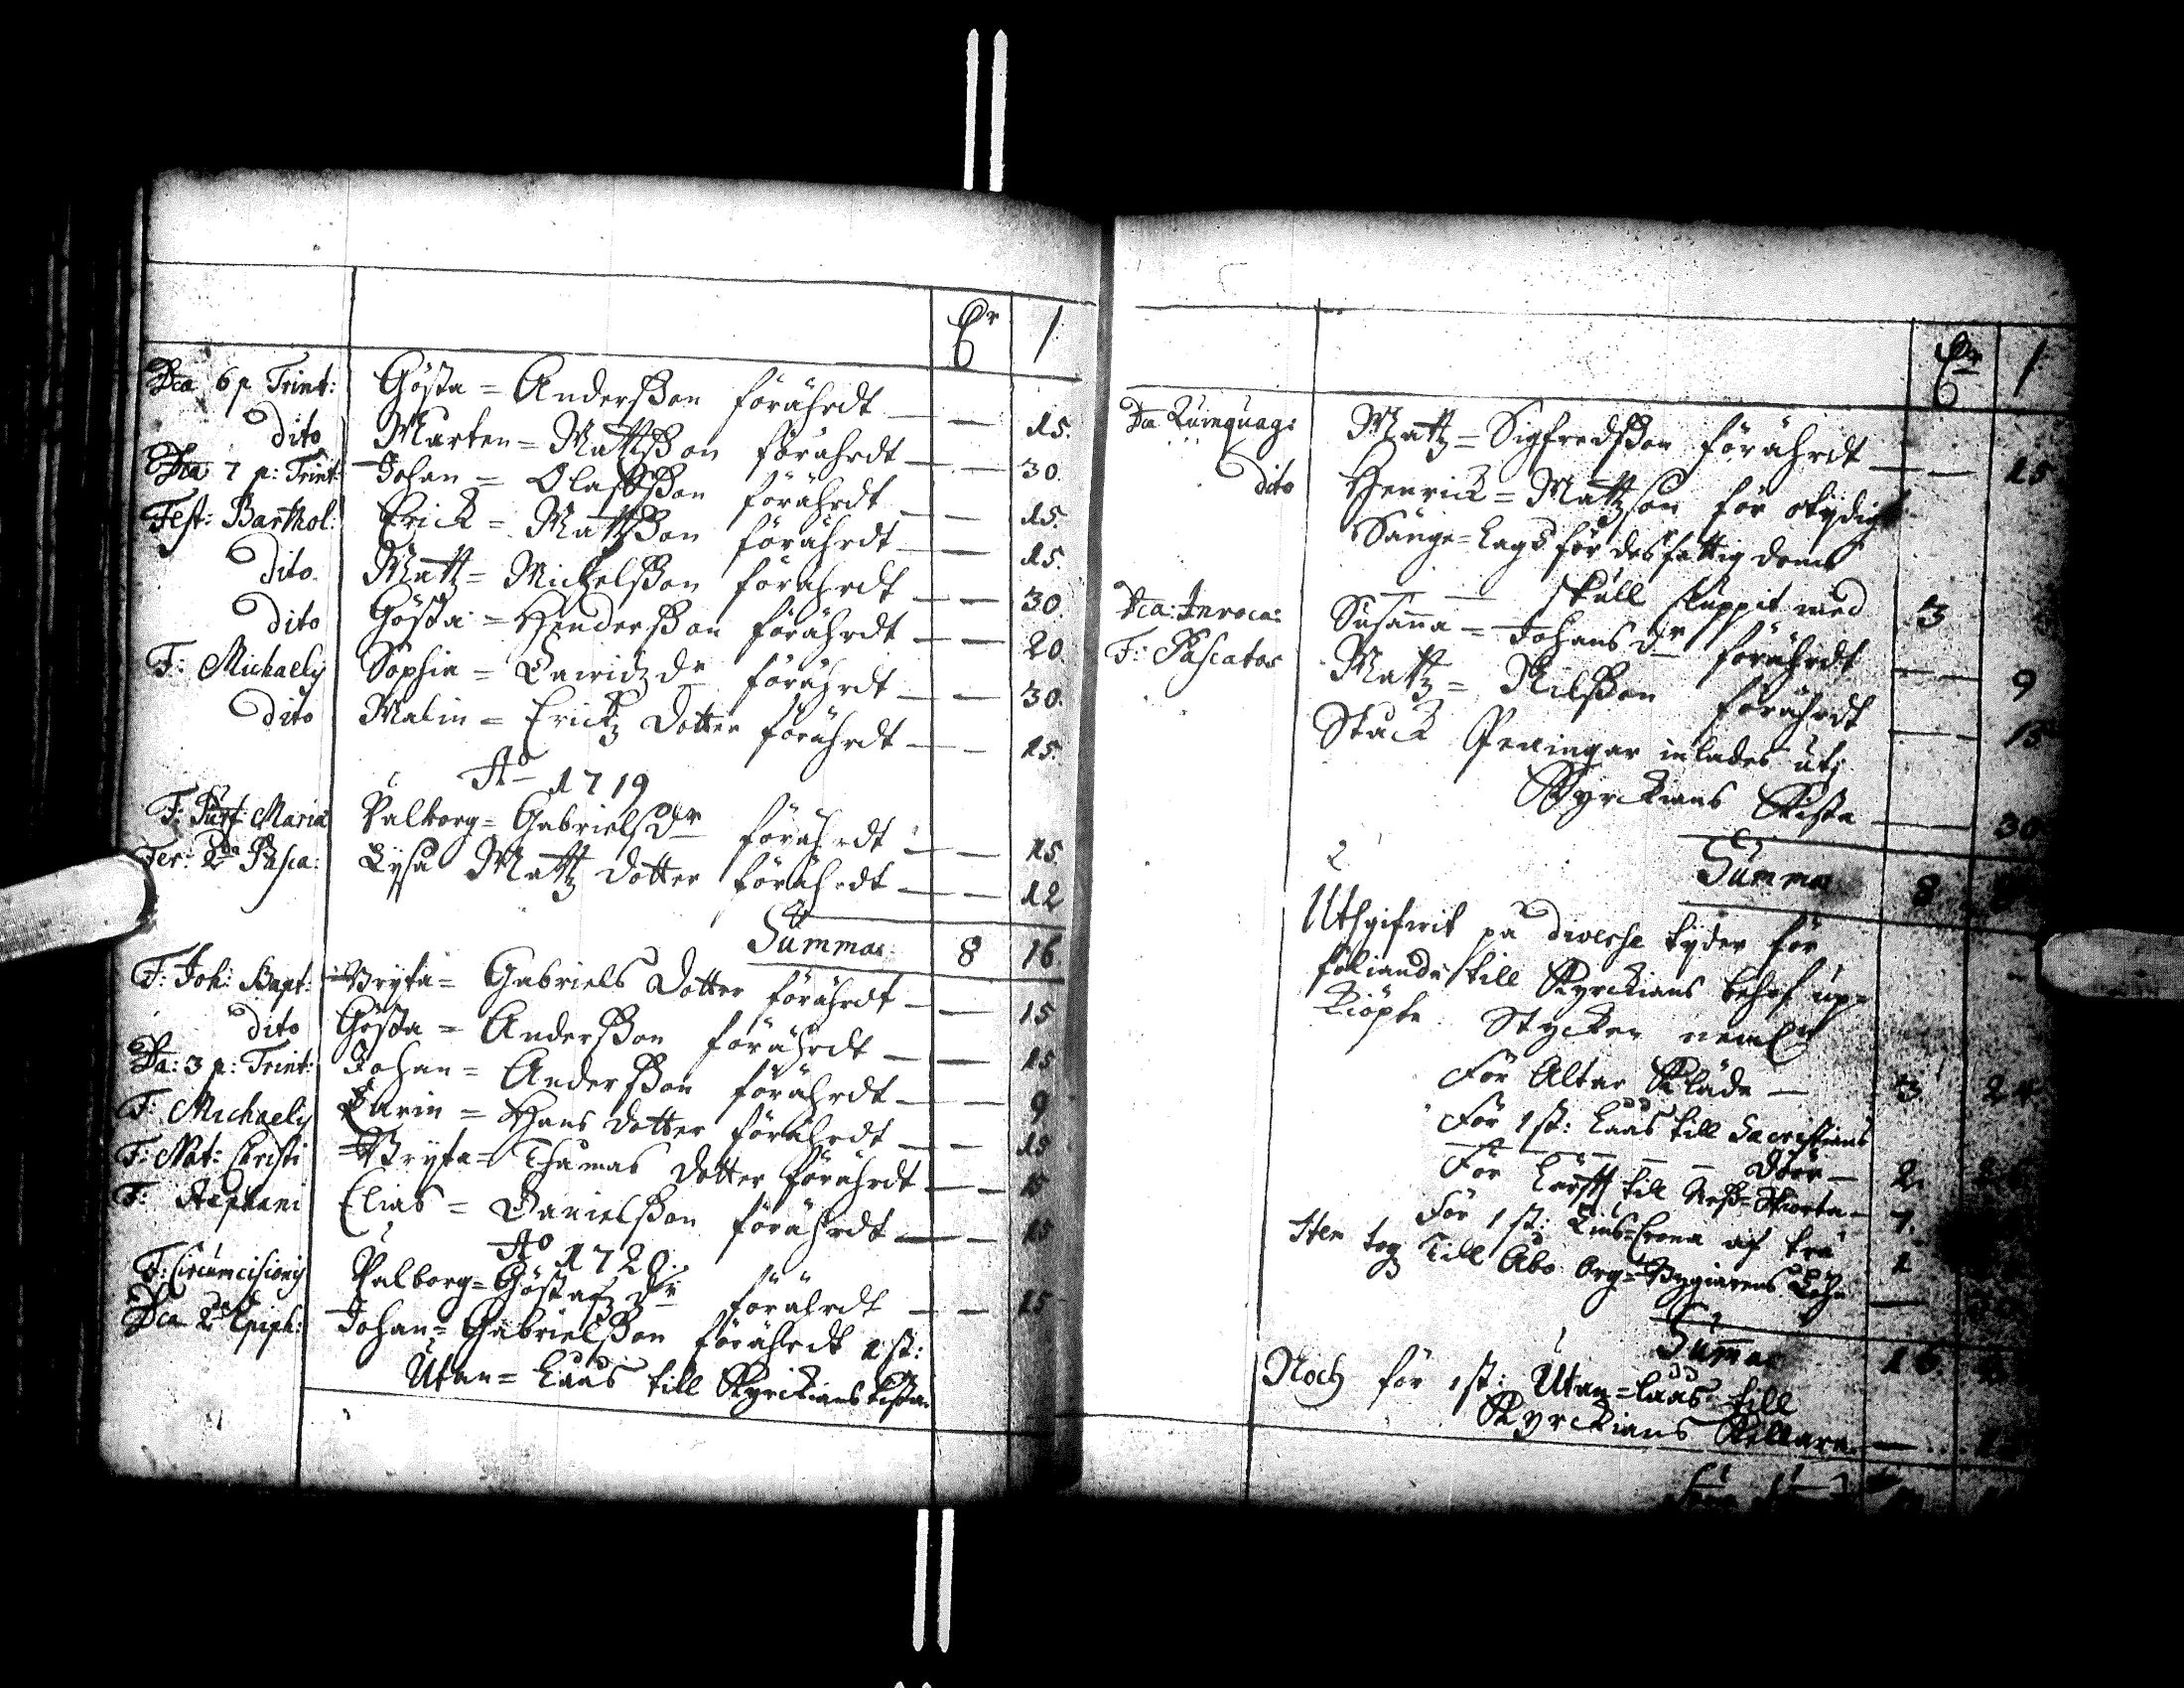 Dca 6 p. Trinit: Gösta = Andersson förährdt — — 15.
Dito Marten = Mattsson förährdt — — 30.
Dca 7 p: Trinit: Johan = Olassson förährdt — — 15.
Fest: Barthol: Erick = Mattsson förährdt — — 15.
Dito. Mattz = Michelsson förährdt — — 30.
Dito Gösta = Hendersson förährdt — — 20.
F: Michaelis Sophia = Dawidz dr förährdt — — 30.
Dito Malin = Erickz Dotter förährdt — — 15.
Ao 1719
F: Purf: Maria Valborg = Gabriels Dr förährdt — — 15.
Fer: 2da Pasca: Lysa Mattz Dotter förährdt — — 12
Summa: 8 16.
F: Joh: Bapt: Bryta = Gabriels Dotter förährdt — — 15
Dito Gösta = Andersson förährdt — — 15
Da: 3 p: Trinit: Johan = Andersson förährdt — — 9
F: Michaelis Karin = Hans Dotter förährdt — — 15
F: Nat: Christi Bryta = Thamas Dotter förährdt — — 15
F: Stephani Elias = Danielsson förährdt — — 15
Ao 1720.
F: Circumcisionis Valborg = Göstafz Dr förährdt — — 15
Dca 2da Epiph: Johan = Gabrielsson förährdt 1 st:
Utan = Laas till Kyrckians kista.
Da Quinquag: Mattz = Sigfredsson förährdt — — 15
Dito Henrick = Mattzson för otydigt
Sänge = Lagd för des fattigdoms
— — skull sluppit med 3
Dca: Invoca: Susanna = Johans Dr förährdt — — 9
F: Pascatos Mattz = Nilsson förährdt — — 15
Stack Peningar inlades uti
Kyrckians Kista — 30
Summa 8
Uthgifwit på diverse tyder för
föliande till Kyrckians behof up=
kiöpte Stycker neml:
För Altar Kläde — 3 24
För 1 st: Laas till Sacristians
— — — — Döör — 2.
För Lärfft till Mess = Skiorta — 7.
För 1 st: Lius = Crona af trä 1
Item tog till Åbo Org = Bygiarens —
Summa 1
Noch för 1 st: Utan = laas till
Kyrckians Kellare. —